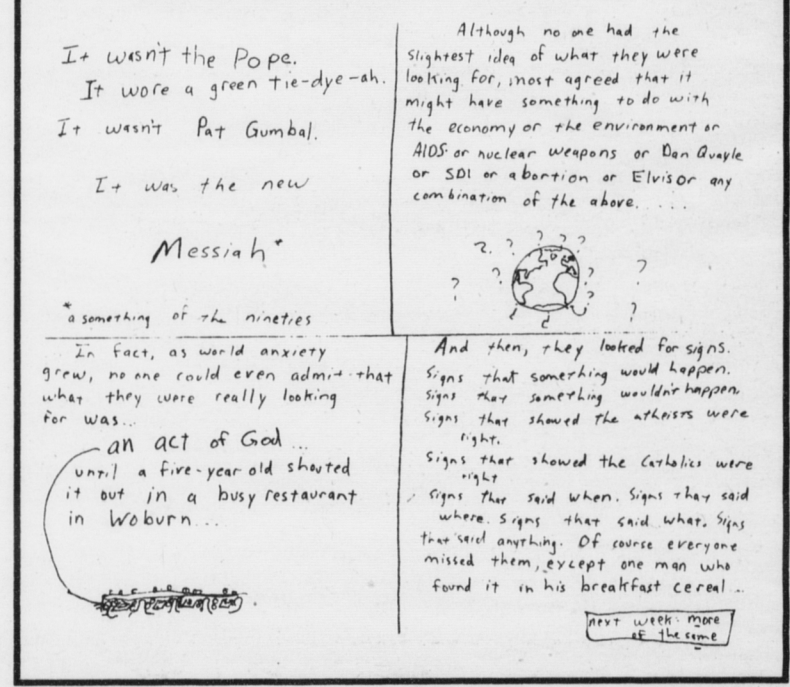 It wasn't the Pope.
It wore a green tie-dye-ah.
It wasn't Pat Gumbal.
It was the new
Messiah*
*a something of the nineties
Although no one had the
slightest idea of what they were
looking for, most agreed that it
might have something to do with
the economy or the environment or
AIDS or nuclear weapons or Dan Quayle
or SDI or abortion or Elvis or any
combination of the above. . . .
? ? ? ? ? ?
? ? ?
? ?
In fact, as world anxiety
grew, no one could even admit that
what they were really looking
for was...
an act of God...
until a five-year old shouted
it out in a busy restaurant
in Woburn...
And then, they looked for signs.
Signs that something would happen.
Signs that something wouldn't happen.
Signs that showed the atheists were
right.
Signs that showed the Catholics were
right
Signs that said when. Signs that said
where. Signs that said what. Signs
that said anything. Of course everyone
missed them, except one man who
found it in his breakfast cereal...
next week: more
of the same